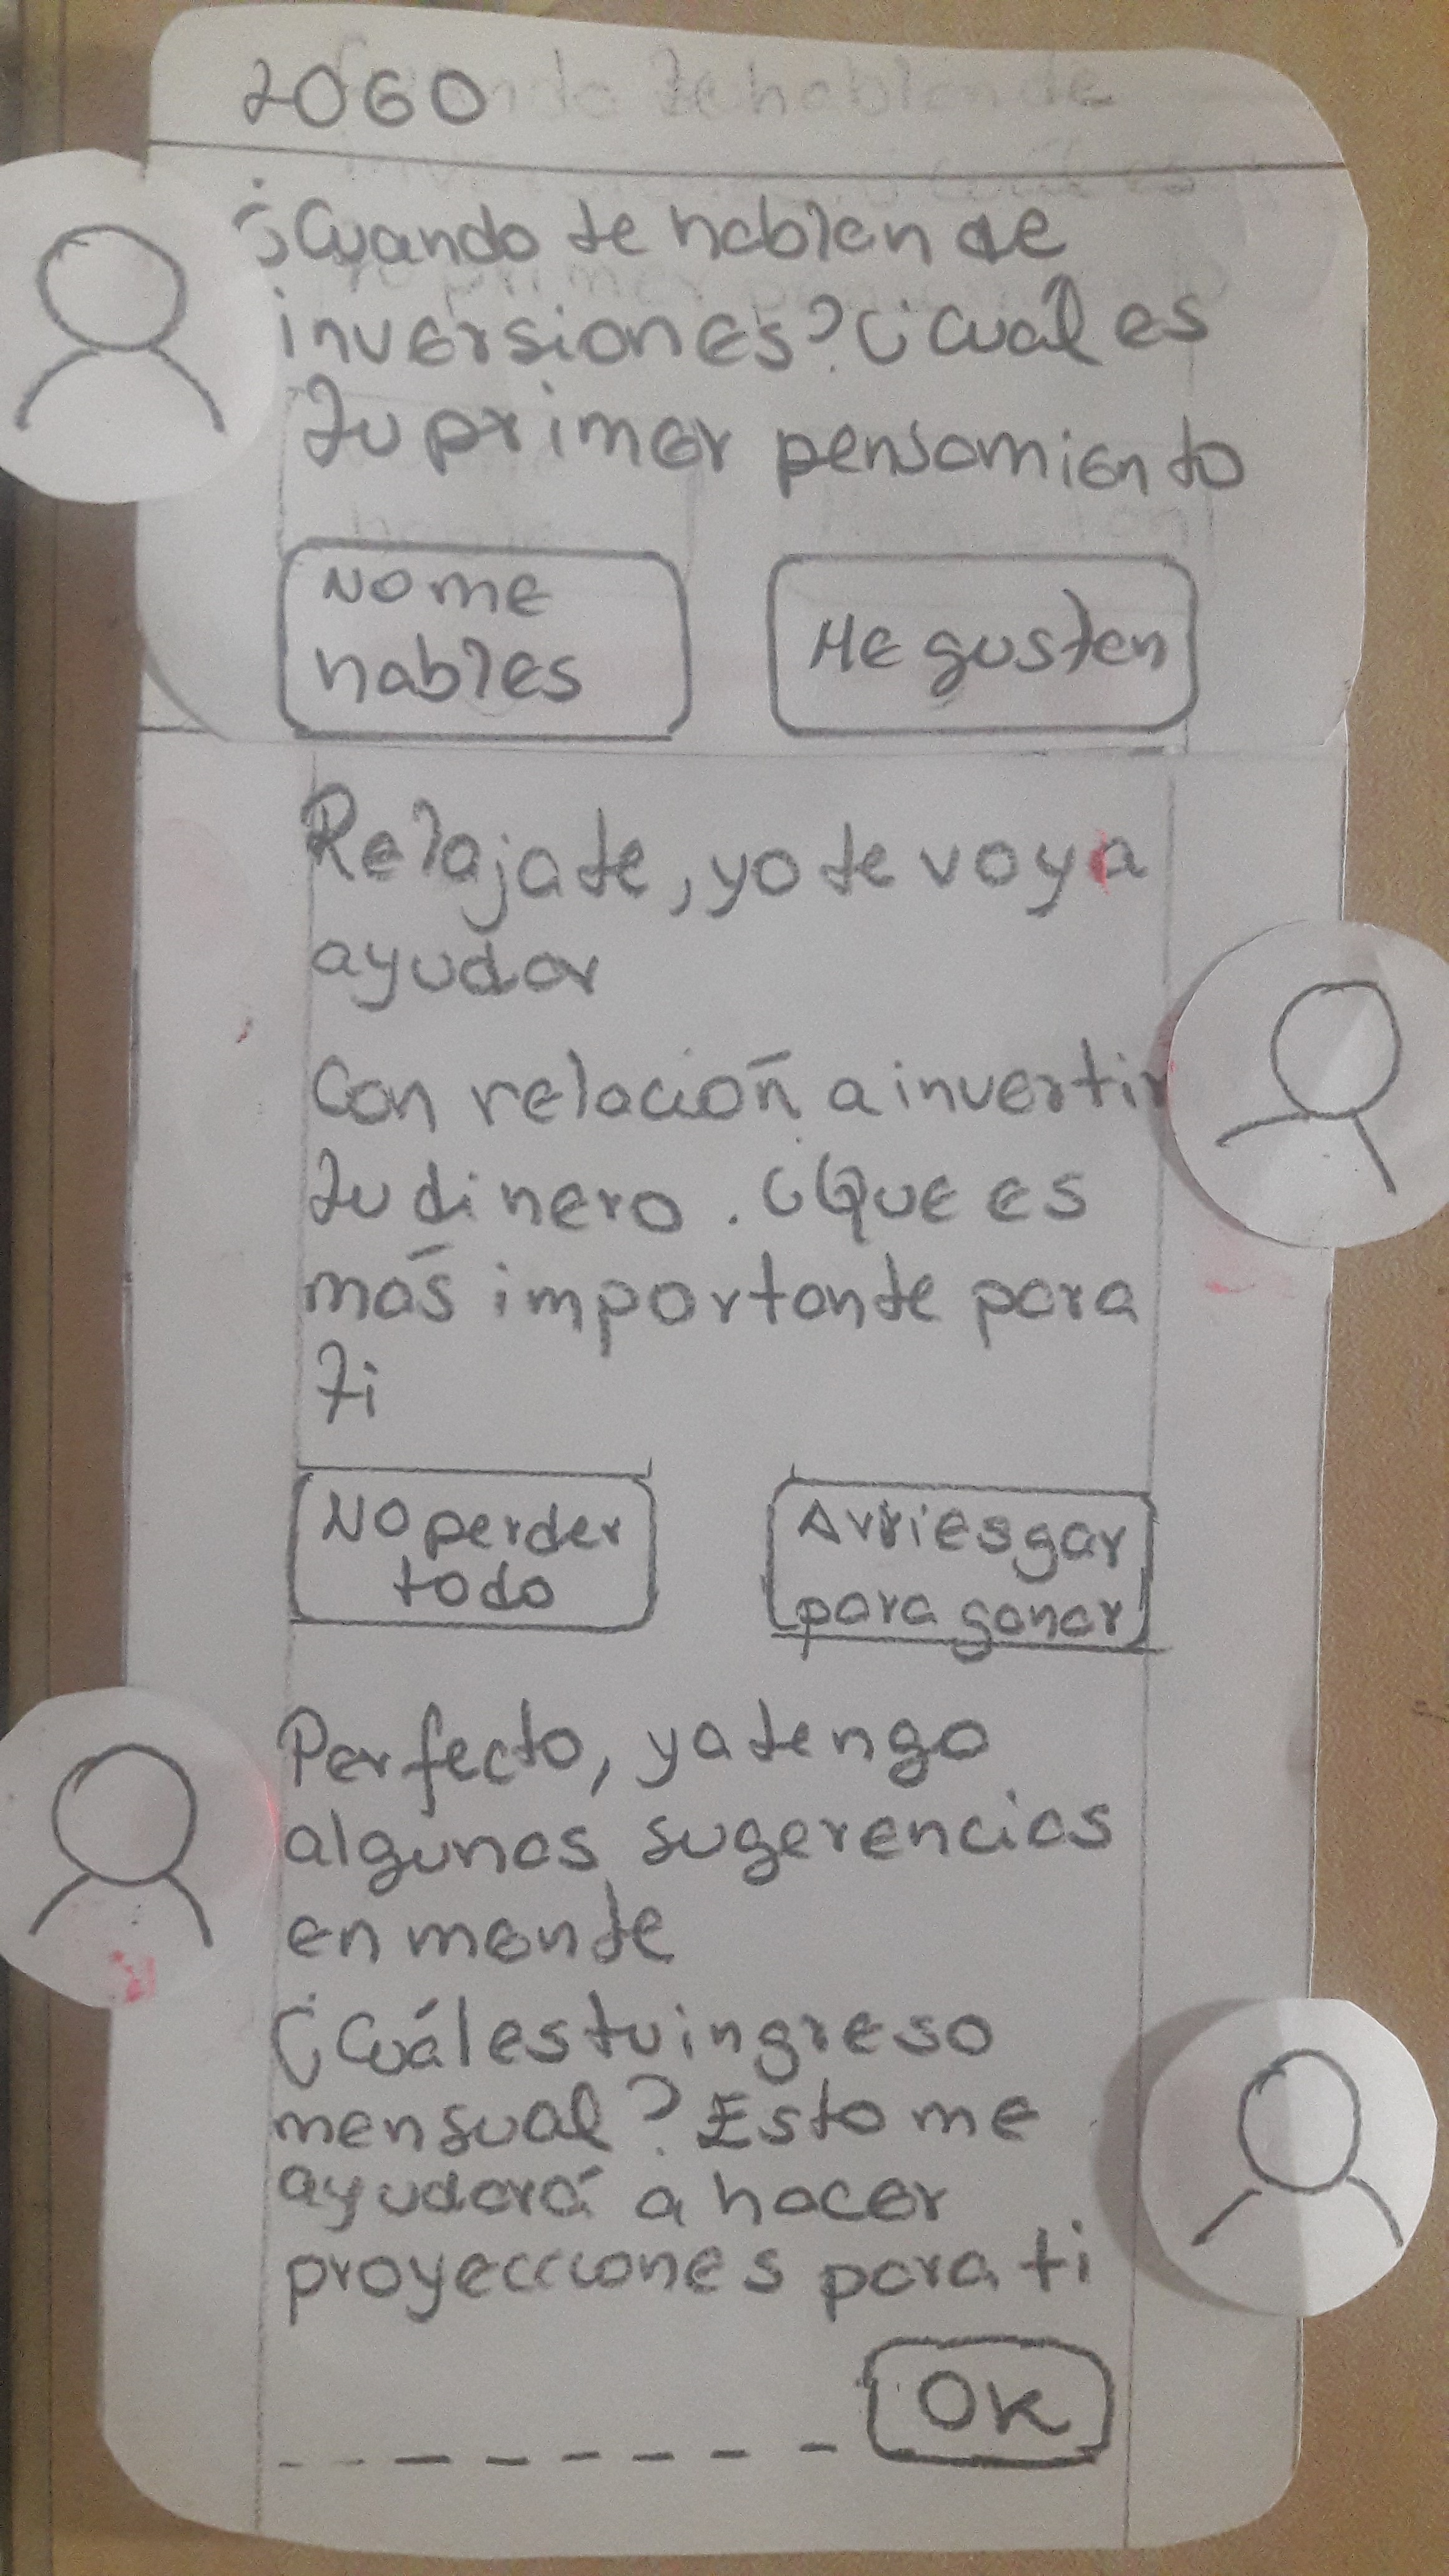 LOGO
¿Cuando te hablan de
inversiones? ¿Cuál es
tu primer pensamiento
No me
hables
Me gustan
Relajate, yo te voy a
ayudar
Con relación a invertir
tu dinero. ¿Que es
más importante para
ti
No perder
todo
Arriesgar
para ganar
Perfecto, ya tengo
algunas sugerencias
en mente
¿Cuál es tu ingreso
mensual? Esto me
ayudará a hacer
proyecciones para ti
OK